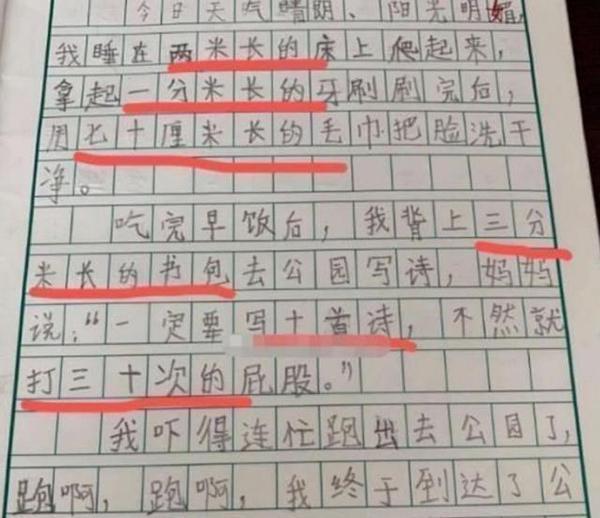 今日天气晴朗、阳光明媚,
我睡在两米长的床上爬起来,
拿起一分米长的牙刷刷完后,
用七十厘米长的毛巾把脸洗干
净。
吃完早饭后,我背上三分
米长的书包去公园写诗,妈妈
说:“一定要写十首诗,不然就
打三十次的屁股。”
我吓得连忙跑出去公园了,
跑啊,跑啊,我终于到达了公